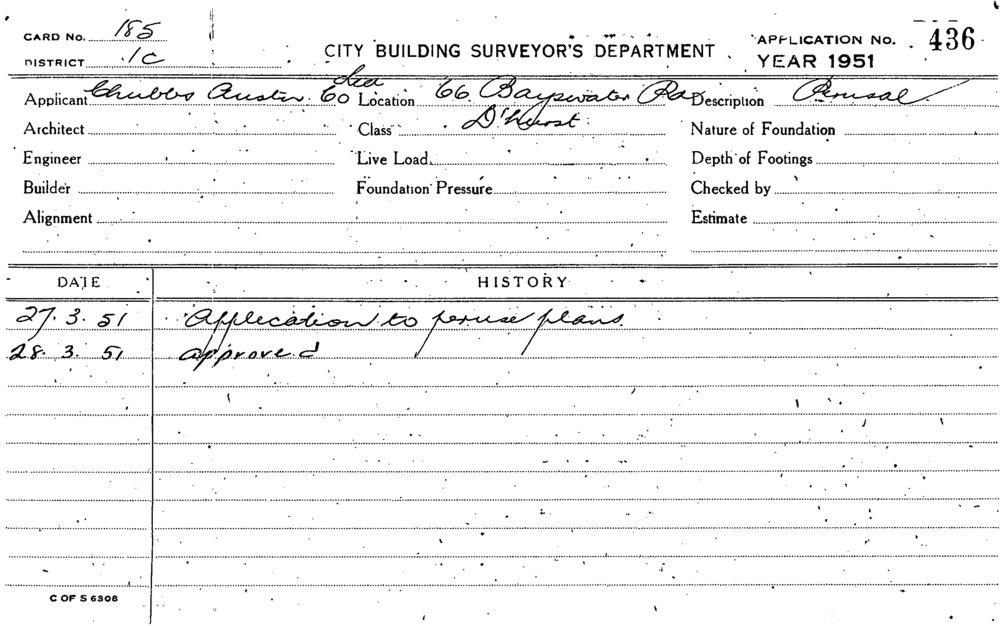 CARD No. 185
DISTRICT 1C
CITY BUILDING SURVEYOR'S DEPARTMENT
APPLICATION No. 436
YEAR 1951
Applicant Chubbs Austn. Co Ltd Location 66 Bayswater Rd Description Perusal
Architect Class D'hurst Nature of Foundation
Engineer Live Load Depth of Footings
Builder Foundation Pressure Checked by
Alignment Estimate
DATE HISTORY
27.3.51 Application to peruse plans.
28.3.51 approved
C OF S 6308